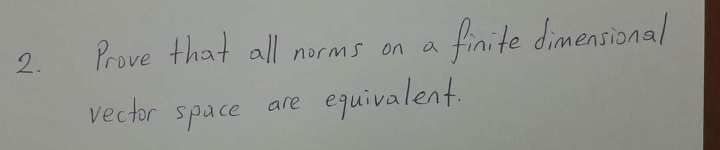 2. Prove that all norms on a finite dimensional
vector space are equivalent.